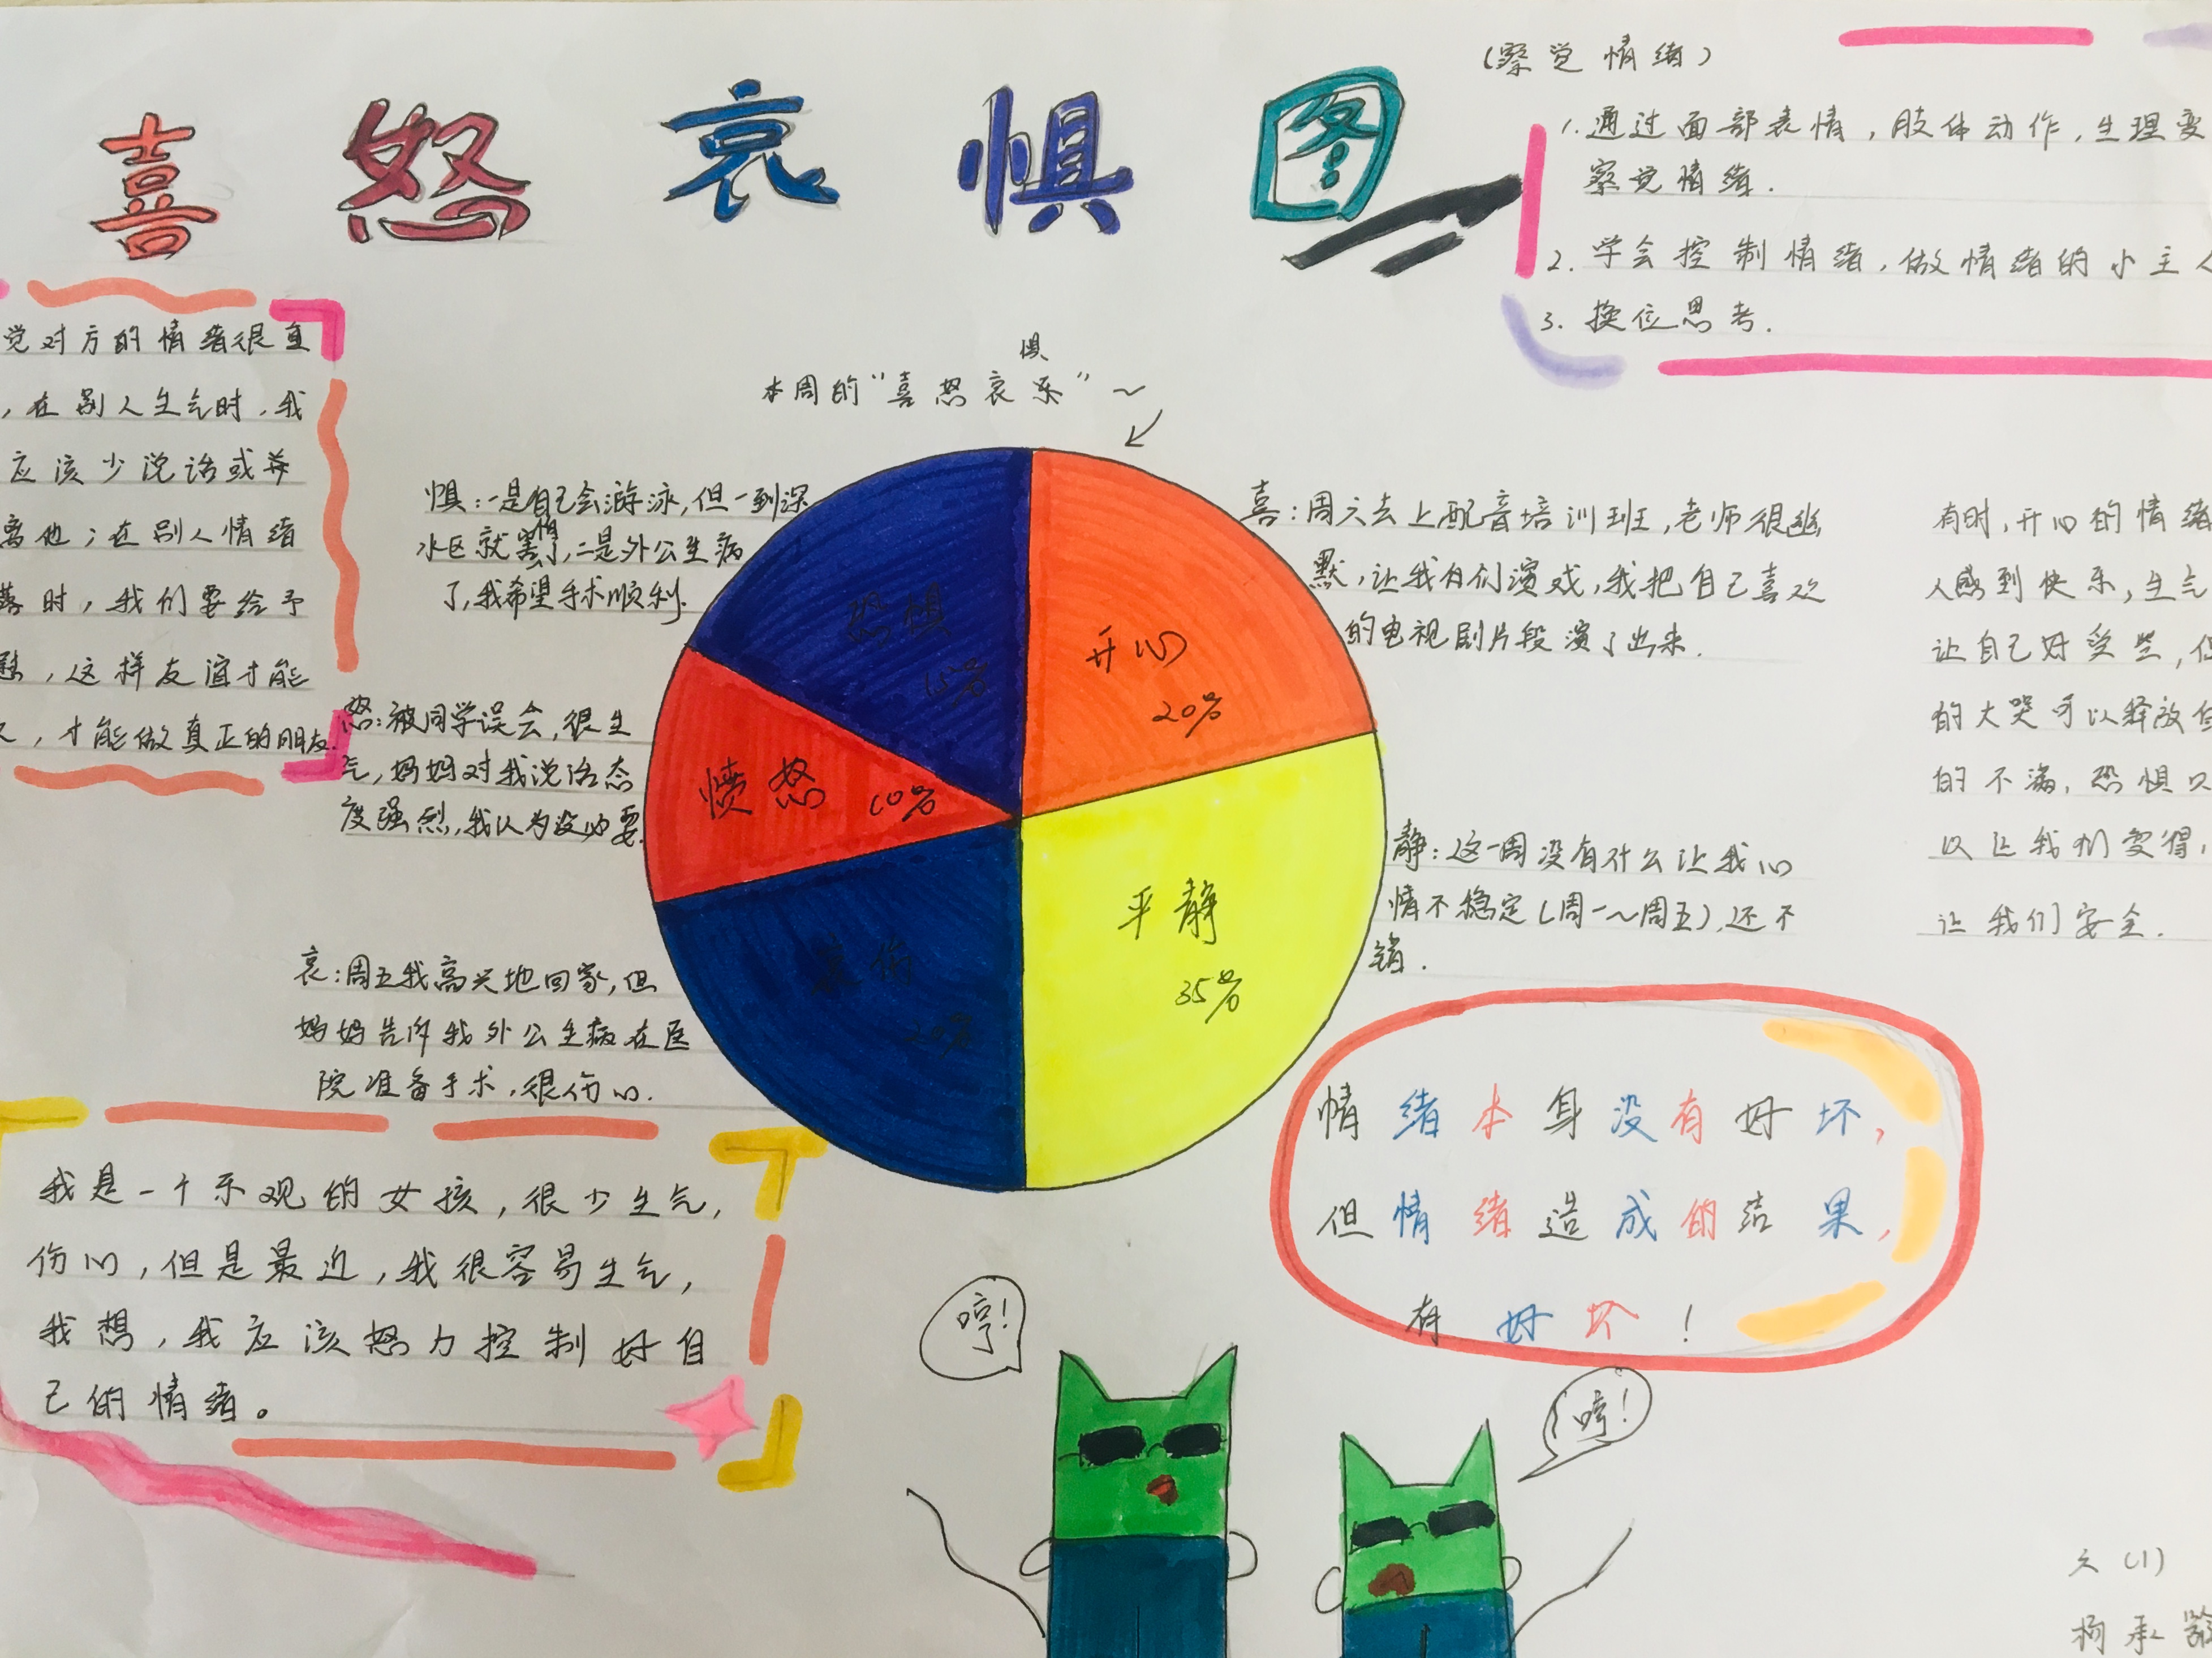 喜怒哀惧图
(察觉情绪)
1.通过面部表情,肢体动作,生理变
察觉情绪.
2.学会控制情绪,做情绪的小主人
3.换位思考.
觉对方的情绪很重
,在别人生气时,我
应该少说话或并
离他;在别人情绪
落时,我们要给予
慰,这样友谊才能
久,才能做真正的朋友.
本周的“喜怒哀乐”~
惧
惧:一是自己会游泳,但一到深
水区就害怕了,二是外公生病
了,我希望手术顺利.
怒:被同学误会,很生
气,妈妈对我说话态
度强烈,我认为没必要.
哀:周五我高兴地回家,但
妈妈告诉我外公生病在医
院准备手术,很伤心.
恐惧
15%
开心
20%
愤怒 10%
平静
35%
哀伤
20%
喜:周六去上配音培训班,老师很幽
默,让我们演戏,我把自己喜欢
的电视剧片段演了出来.
静:这一周没有什么让我心
情不稳定(周一~周五),还不
错.
有时,开心的情绪
人感到快乐,生气
让自己好受些,
的大哭可以释放
的不满,恐惧
以让我们变得
让我们安全.
我是一个乐观的女孩,很少生气,
伤心,但是最近,我很容易生气,
我想,我应该怒力控制好自
己的情绪。
情绪本身没有好坏,
但情绪造成的结果,
有好坏!
哼!
哼!
六(1)
杨承